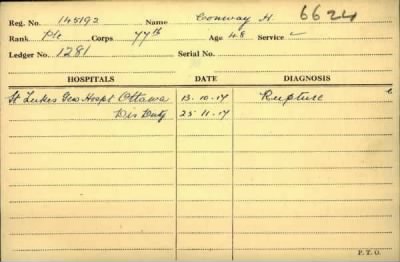 Reg. No. 145192 Name Conway H. 6624
Rank Pte Corps 77th Age 48 Service -
Ledger No. 1281 Serial No.
HOSPITALS DATE DIAGNOSIS
St Lukes Gen Hospt Ottawa 13.10.17 Rupture
Dis Duty 25.11.17
P. T. O.